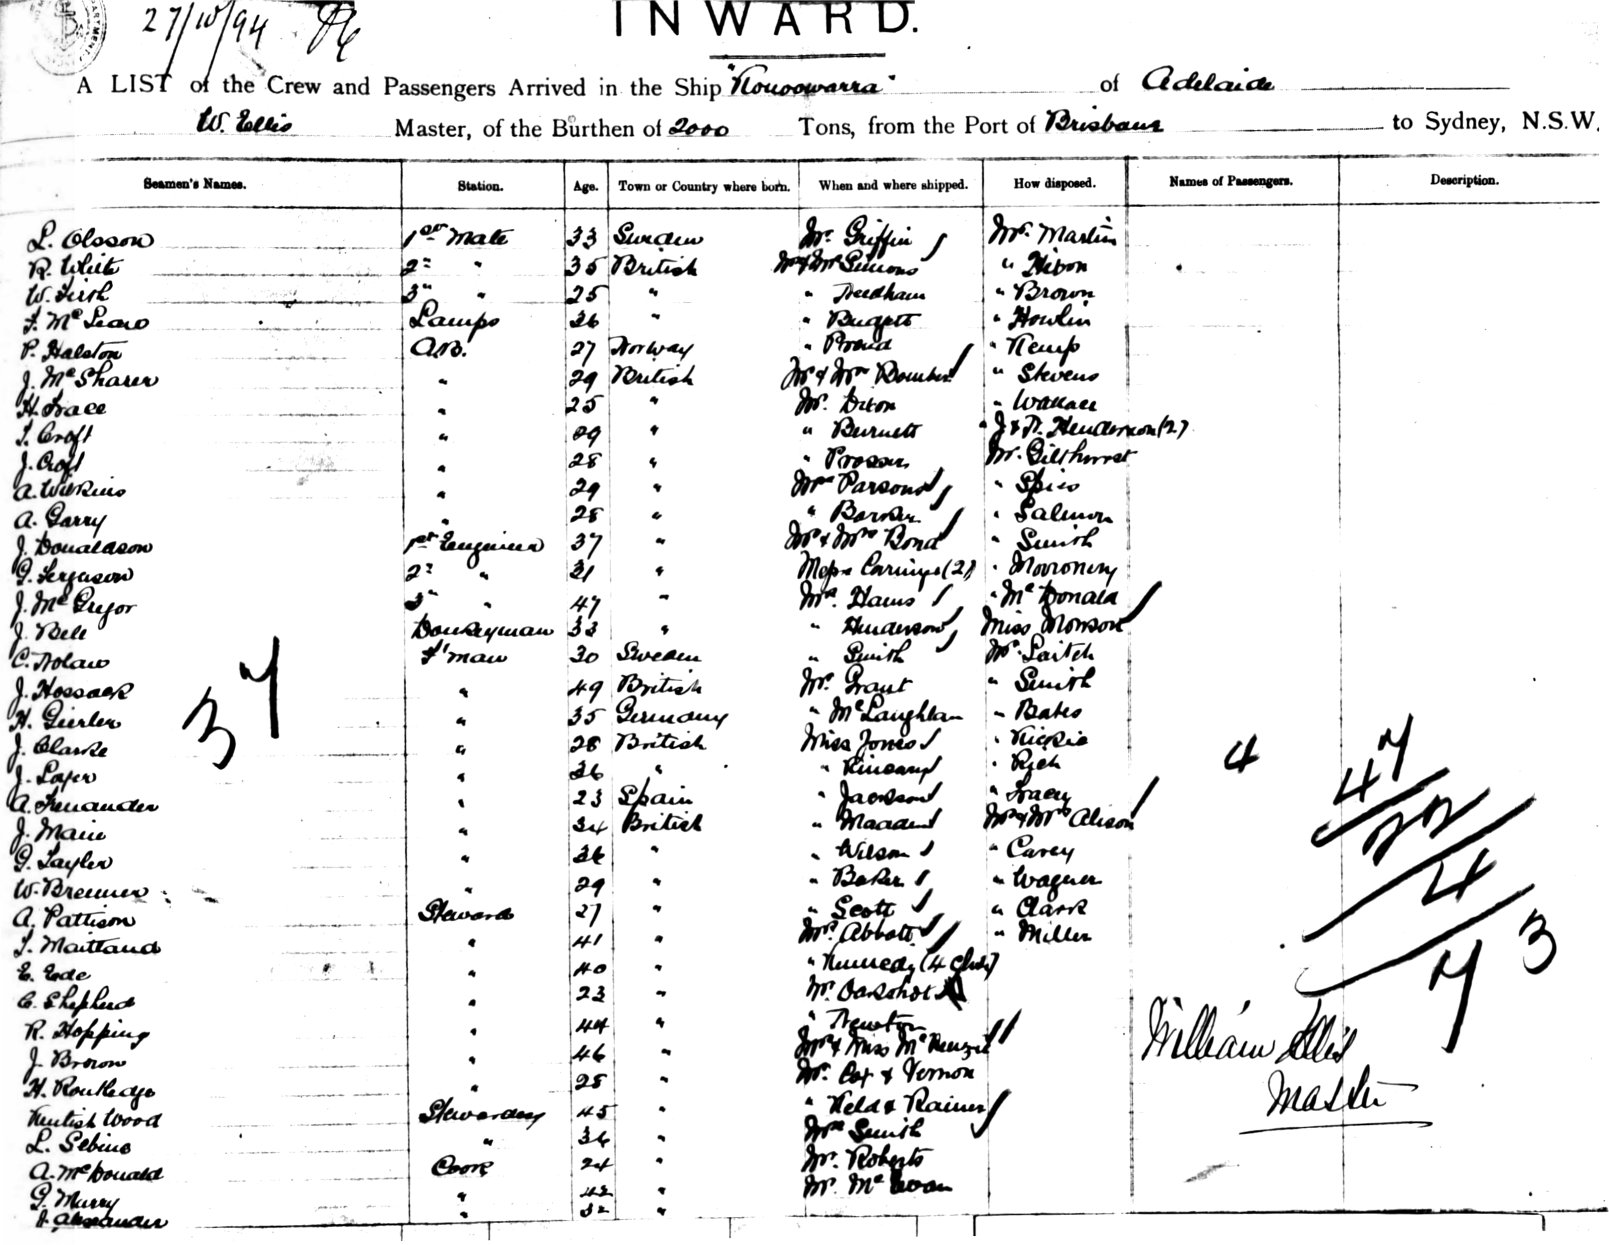 27/10/94
INWARD.
A LIST of the Crew and Passengers Arrived in the Ship "Nonoowarra" of Adelaide
W. Ellis Master, of the Burthen of 2000 Tons, from the Port of Brisbane to Sydney, N.S.W.
Seamen's Names. Station. Age. Town or Country where born. When and where shipped. How disposed. Names of Passengers. Description.
L. Olsson 1st Mate 33 Sweden Mr. Griffin Mr. Martin
R. White 2nd " 35 British Mr & Mrs Simons " Hixon
W. Firth 3rd " 25 " " Needham " Brown
Lamps 36 " " Budgett " Howlin
P. Halston A.B. 27 Norway " Proud " Kemp
J. McSharer " 29 British Mr & Mrs " Stevens
H. Trace " 25 " Mr. Dixon " Wallace
T. Croft " 29 " " Burnett " J & A. Henderson (2)
J. Croft " 28 " " Prosser Mr. Gilthorst
A. Wilkins " 29 " Mrs Parsons " Spies
A. Garry " 28 " " Barker " Salmon
J. Donaldson 1st Engineer 37 " Mr & Mrs Bond " Smith
G. Ferguson 2nd " 31 " (2)
J. McGregor 3rd " 47 " Mrs. Hams " McDonald
J. Bell Donkeyman 33 " " Henderson Miss Monson
C. Nolan F'man 30 Sweden " Smith Mr. Laitch
J. Hossack " 49 British Mr. Grant " Smith
H. Gierler " 35 Germany " McLaughlan " Bates
J. Clarke " 28 British Miss Jones " Nickie
J. " 36 " " " Rich
A. Fernander " 23 Spain " Jackson " Tracey
J. Main " 34 British " Madden Mr & Mrs Alison
G. Tayler " 36 " " Wilson " Carey
W. Bremner " 29 " " Baker " Wagner
A. Pattison Steward 27 " " Scott " Clark
T. Maitland " 41 " Mrs. Abbott " Miller
E. Ede " 40 " " Kennedy (4 chdn)
C. Shepherd " 23 " Mr. Oakshot
R. Hopping " 44 " " Newton
J. Brown " 46 " Mrs & Miss McKenzie
H. Routledge " 28 " Mr. Cox & Vernon
Kentish Wood Stewardess 45 " " Held & Rainer
L. Sebins " 36 " Mrs Smith
A. McDonald Cook 24 " Mr. Roberts
G. Murry " 42 " Mr. McEwan
A. Alexander " 32 "
37
4
47
22
4
73
William Ellis
Master